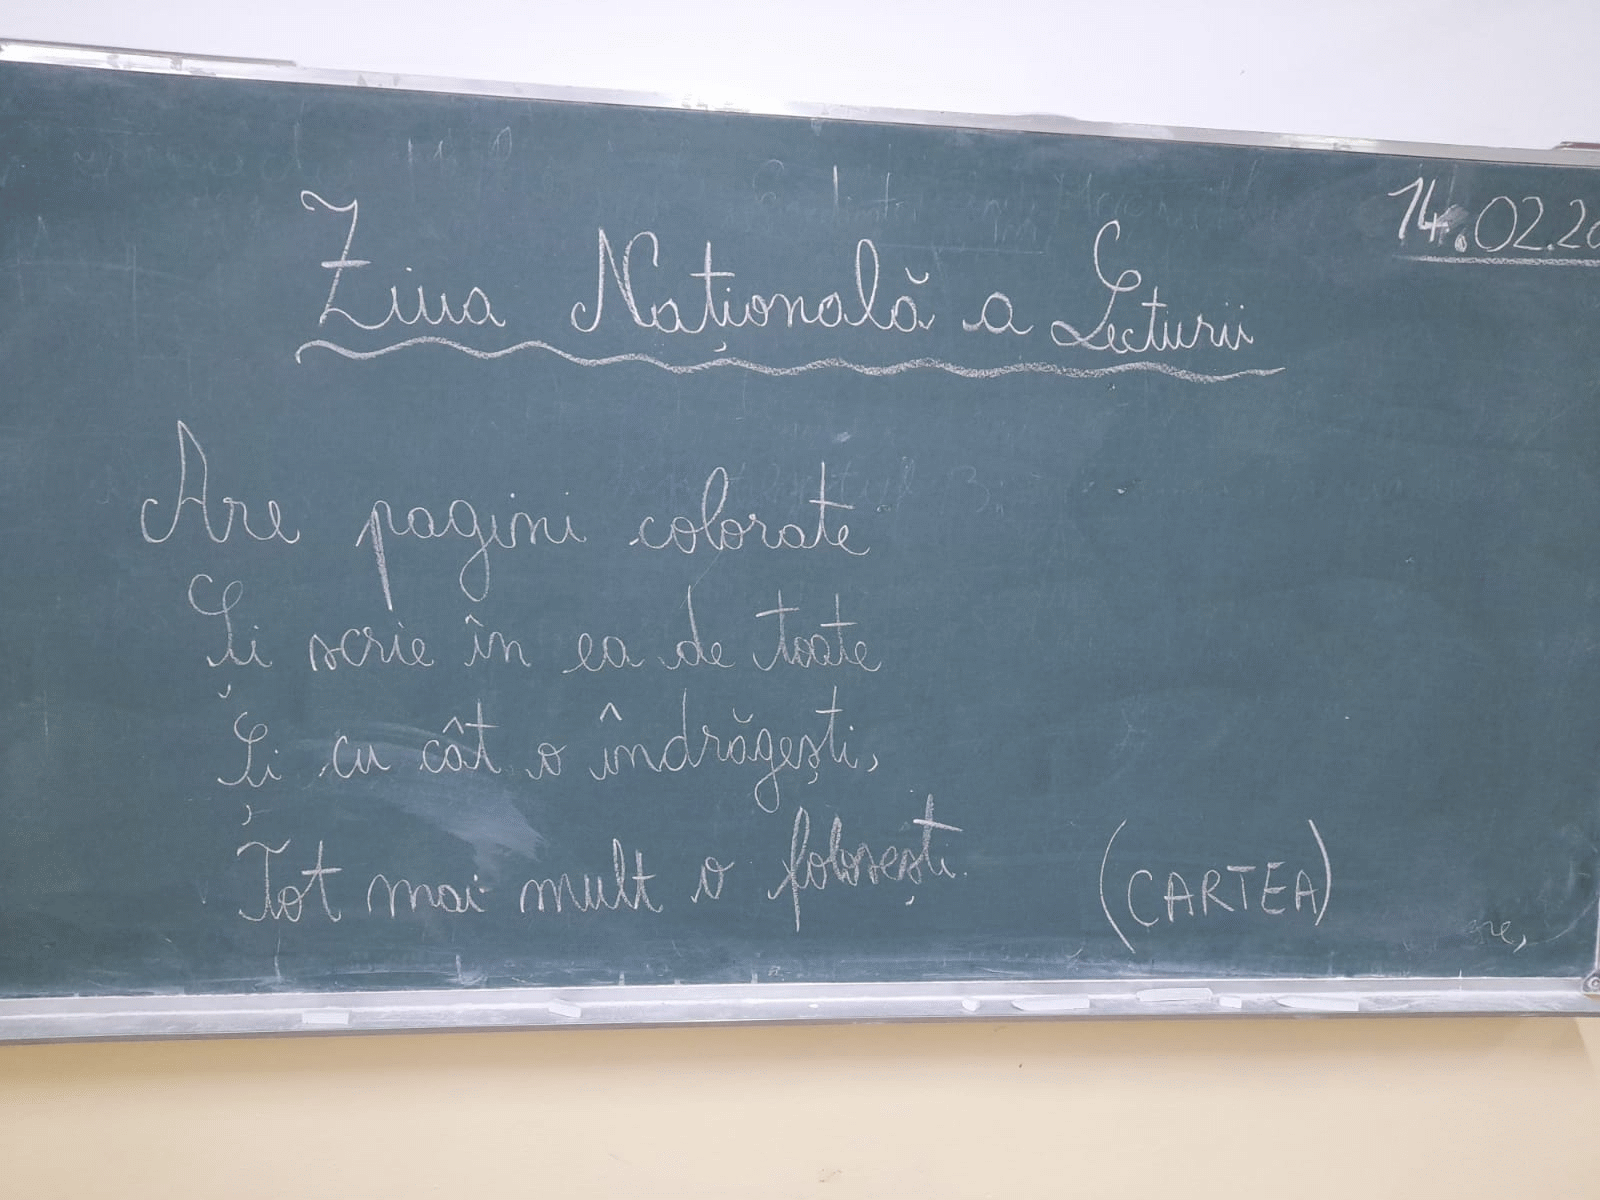 14.02.20
Ziua Națională a Lecturii
Are pagini colorate
Și scrie în ea de toate
Și cu cât o îndrăgești,
Tot mai mult o folosești.
(CARTEA)